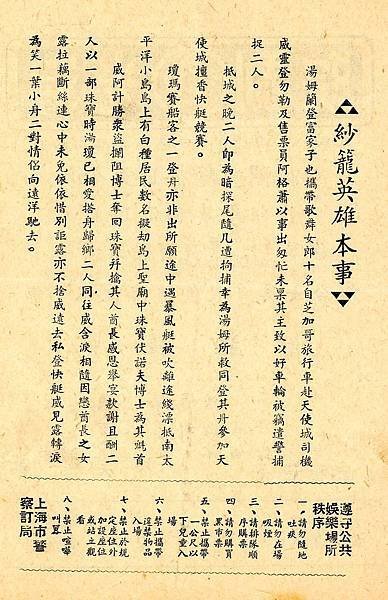 紗籠英雄本事
湯姆蘭登富家子也攜帶歌舞女郎十名自芝加哥旅行車赴天使城司機
威靈登勿勒及售票員阿格蕭以事出匆忙未稟其主致以好車輪被竊遣警捕
捉二人。
抵城之晚二人即為暗探尾隨几遭拘捕幸為湯姆所救同登其舟參加天
使城擅香快艇競賽。
瓊瑪賽船客之一登舟亦非出所願途中遇暴風艇被吹離途綫漂抵南太
平洋小島島上有白種居民數名擬劫島上聖廟中珠寶伏諾夫博士為其魁首
威阿計勝衆盜捆阻博士奪回珠寶并擒其人酋長感恩舉宴欵謝且酬二
人以一部珠寶時湯瓊已相愛搭舟歸鄉二人同往威含淚相隨因戀酋長之女
露拉藕斷絲連心中未免依依惜別詎露亦不捨威遠去私登快艇威見露轉淚
為笑一葉小舟二對情侶向遠洋馳去。
遵守公共
娛樂場所
秩序
一．請勿隨地
吐痰
二．請勿在場
吸煙
三．請排隊順
序購票
四．請勿購買
黑市票
五．禁止攜帶
一公尺以
下兒童入
場
六．禁止攜帶
違禁物品
入場
七．禁止於規
定座位外
加設座位
或站立觀
看
八．禁止喧嘩
叫囂
上海市警
察訂局